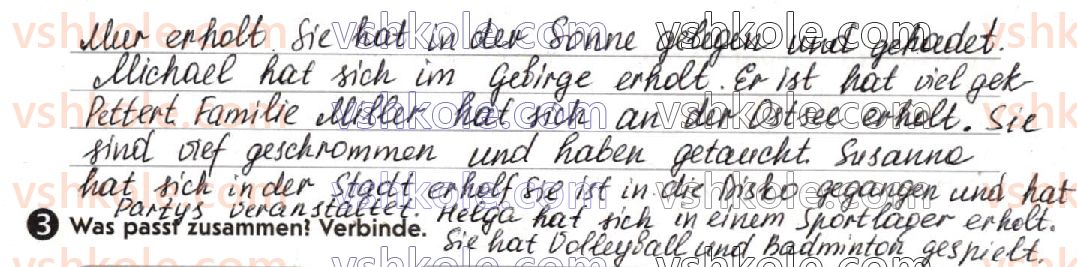 Mur erholt. Sie hat in der Sonne gelegen und gebadet.
Michael hat sich im Gebirge erholt. Er ist hat viel gek-
lettert. Familie Miller hat sich an der Ostsee erholt. Sie
sind vief geschrommen und haben getaucht. Susanna
hat sich in der Stadt erholt Sie ist in die Disko gegangen und hat
Partys veranstaltet. Helga hat sich in einem Sportlager erholt.
3 Was passt zusammen? Verbinde.
Sie hat Volleyball und Badminton gespielt.
vshkole.com